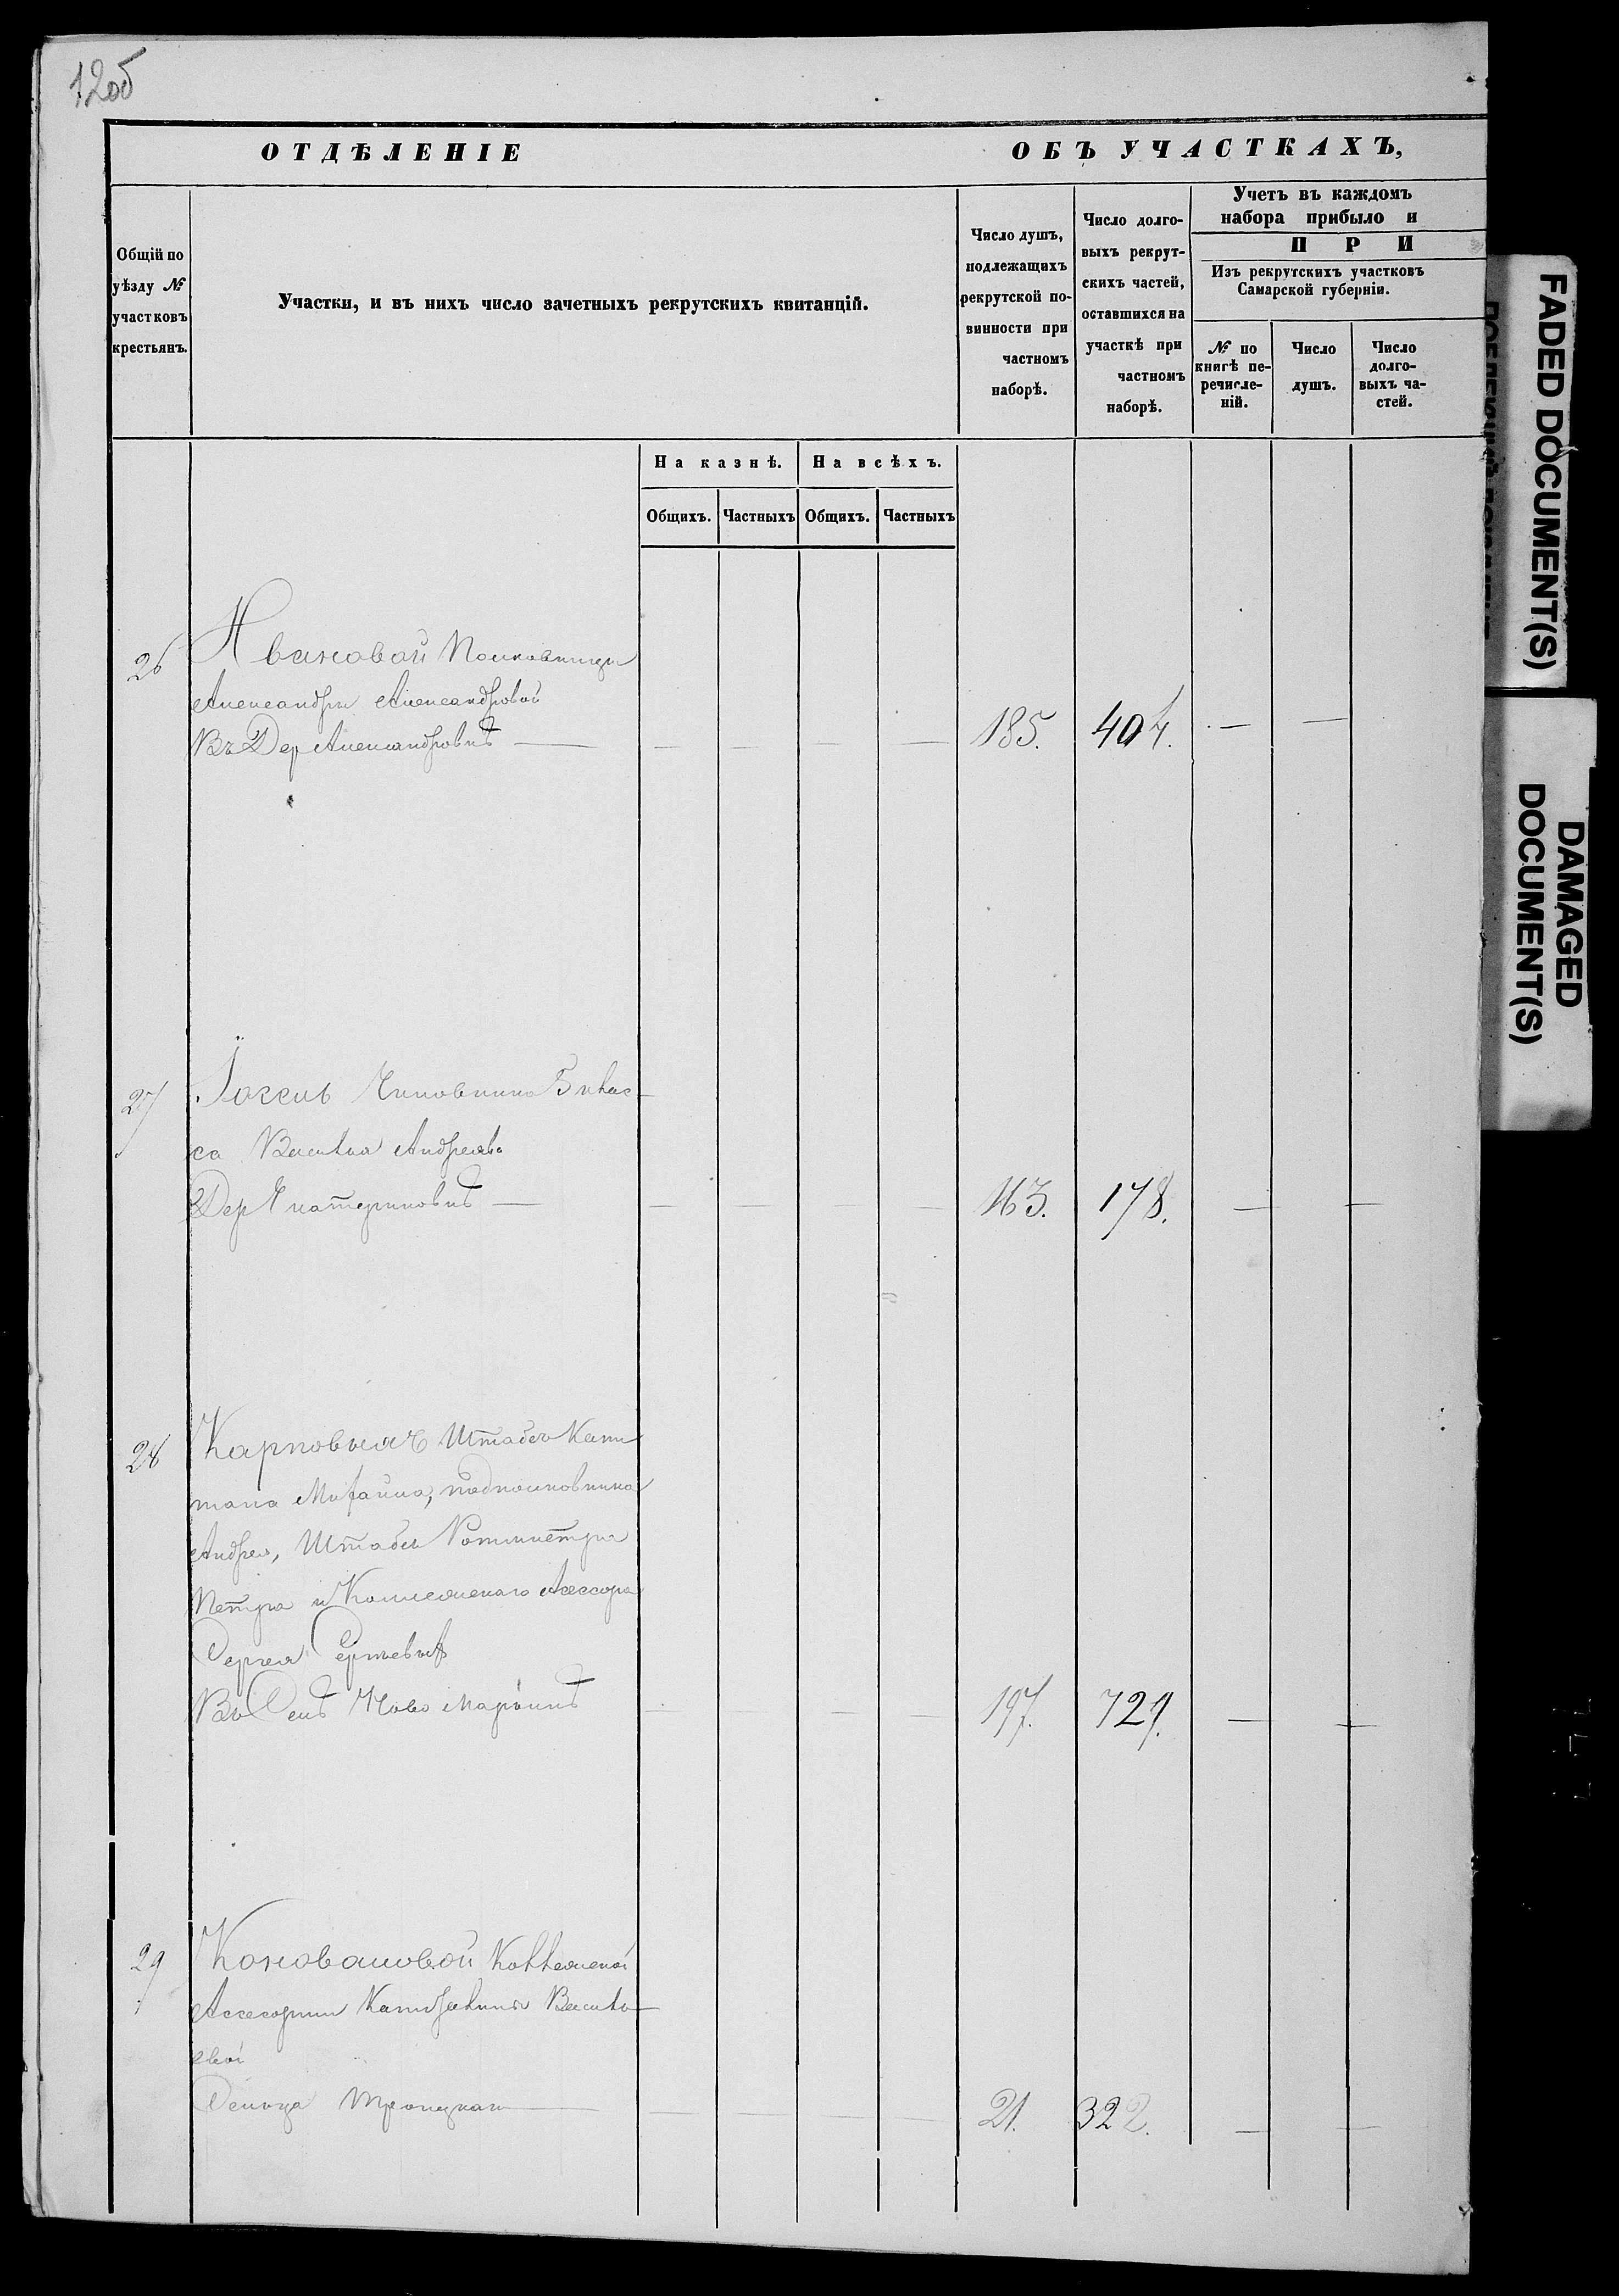 12об
ОТДѢЛЕНІЕ ОБЪ УЧАСТКАХЪ,
Общій по уѣзду № участковъ крестьянъ.
Участки, и въ нихъ число зачетныхъ рекрутскихъ квитанцій.
Число душъ, подлежащихъ рекрутской повинности при частномъ наборѣ.
Число долговыхъ рекрутскихъ частей, оставшихся на участкѣ при частномъ наборѣ.
Учетъ въ каждомъ
набора прибыло и
ПРИ
Изъ рекрутскихъ участковъ
Самарской губерніи.
№ по книгѣ перечисленій.
Число душъ.
Число долговыхъ частей.
На казнѣ. На всѣхъ.
Общихъ. Частныхъ Общихъ. Частныхъ
26 Ивановой Полковницы
Александры Александровной
Въ Дер Александровкѣ — — — — — 185. 404. — —
27 Чиновника 5 клас-
са Василья Андреева
Дер Екатериновкѣ — — — — — 163. 178. — —
28 Карповыхъ Штабсъ Капи
тана Михаила, подполковника
Андрея, Штабсъ Ротмистра
Петра и Коллежскаго Асессора
Сергея Сергѣевыхъ
Въ Селѣ Ново Марьинѣ — — — 197. 729. — —
29 Коноваловой Коллежской
Ассесорши Василь-
евой
Сельца Троицкаго — — — — — 21. 322. — —
FADED DOCUMENT(S)
DAMAGED
DOCUMENT(S)